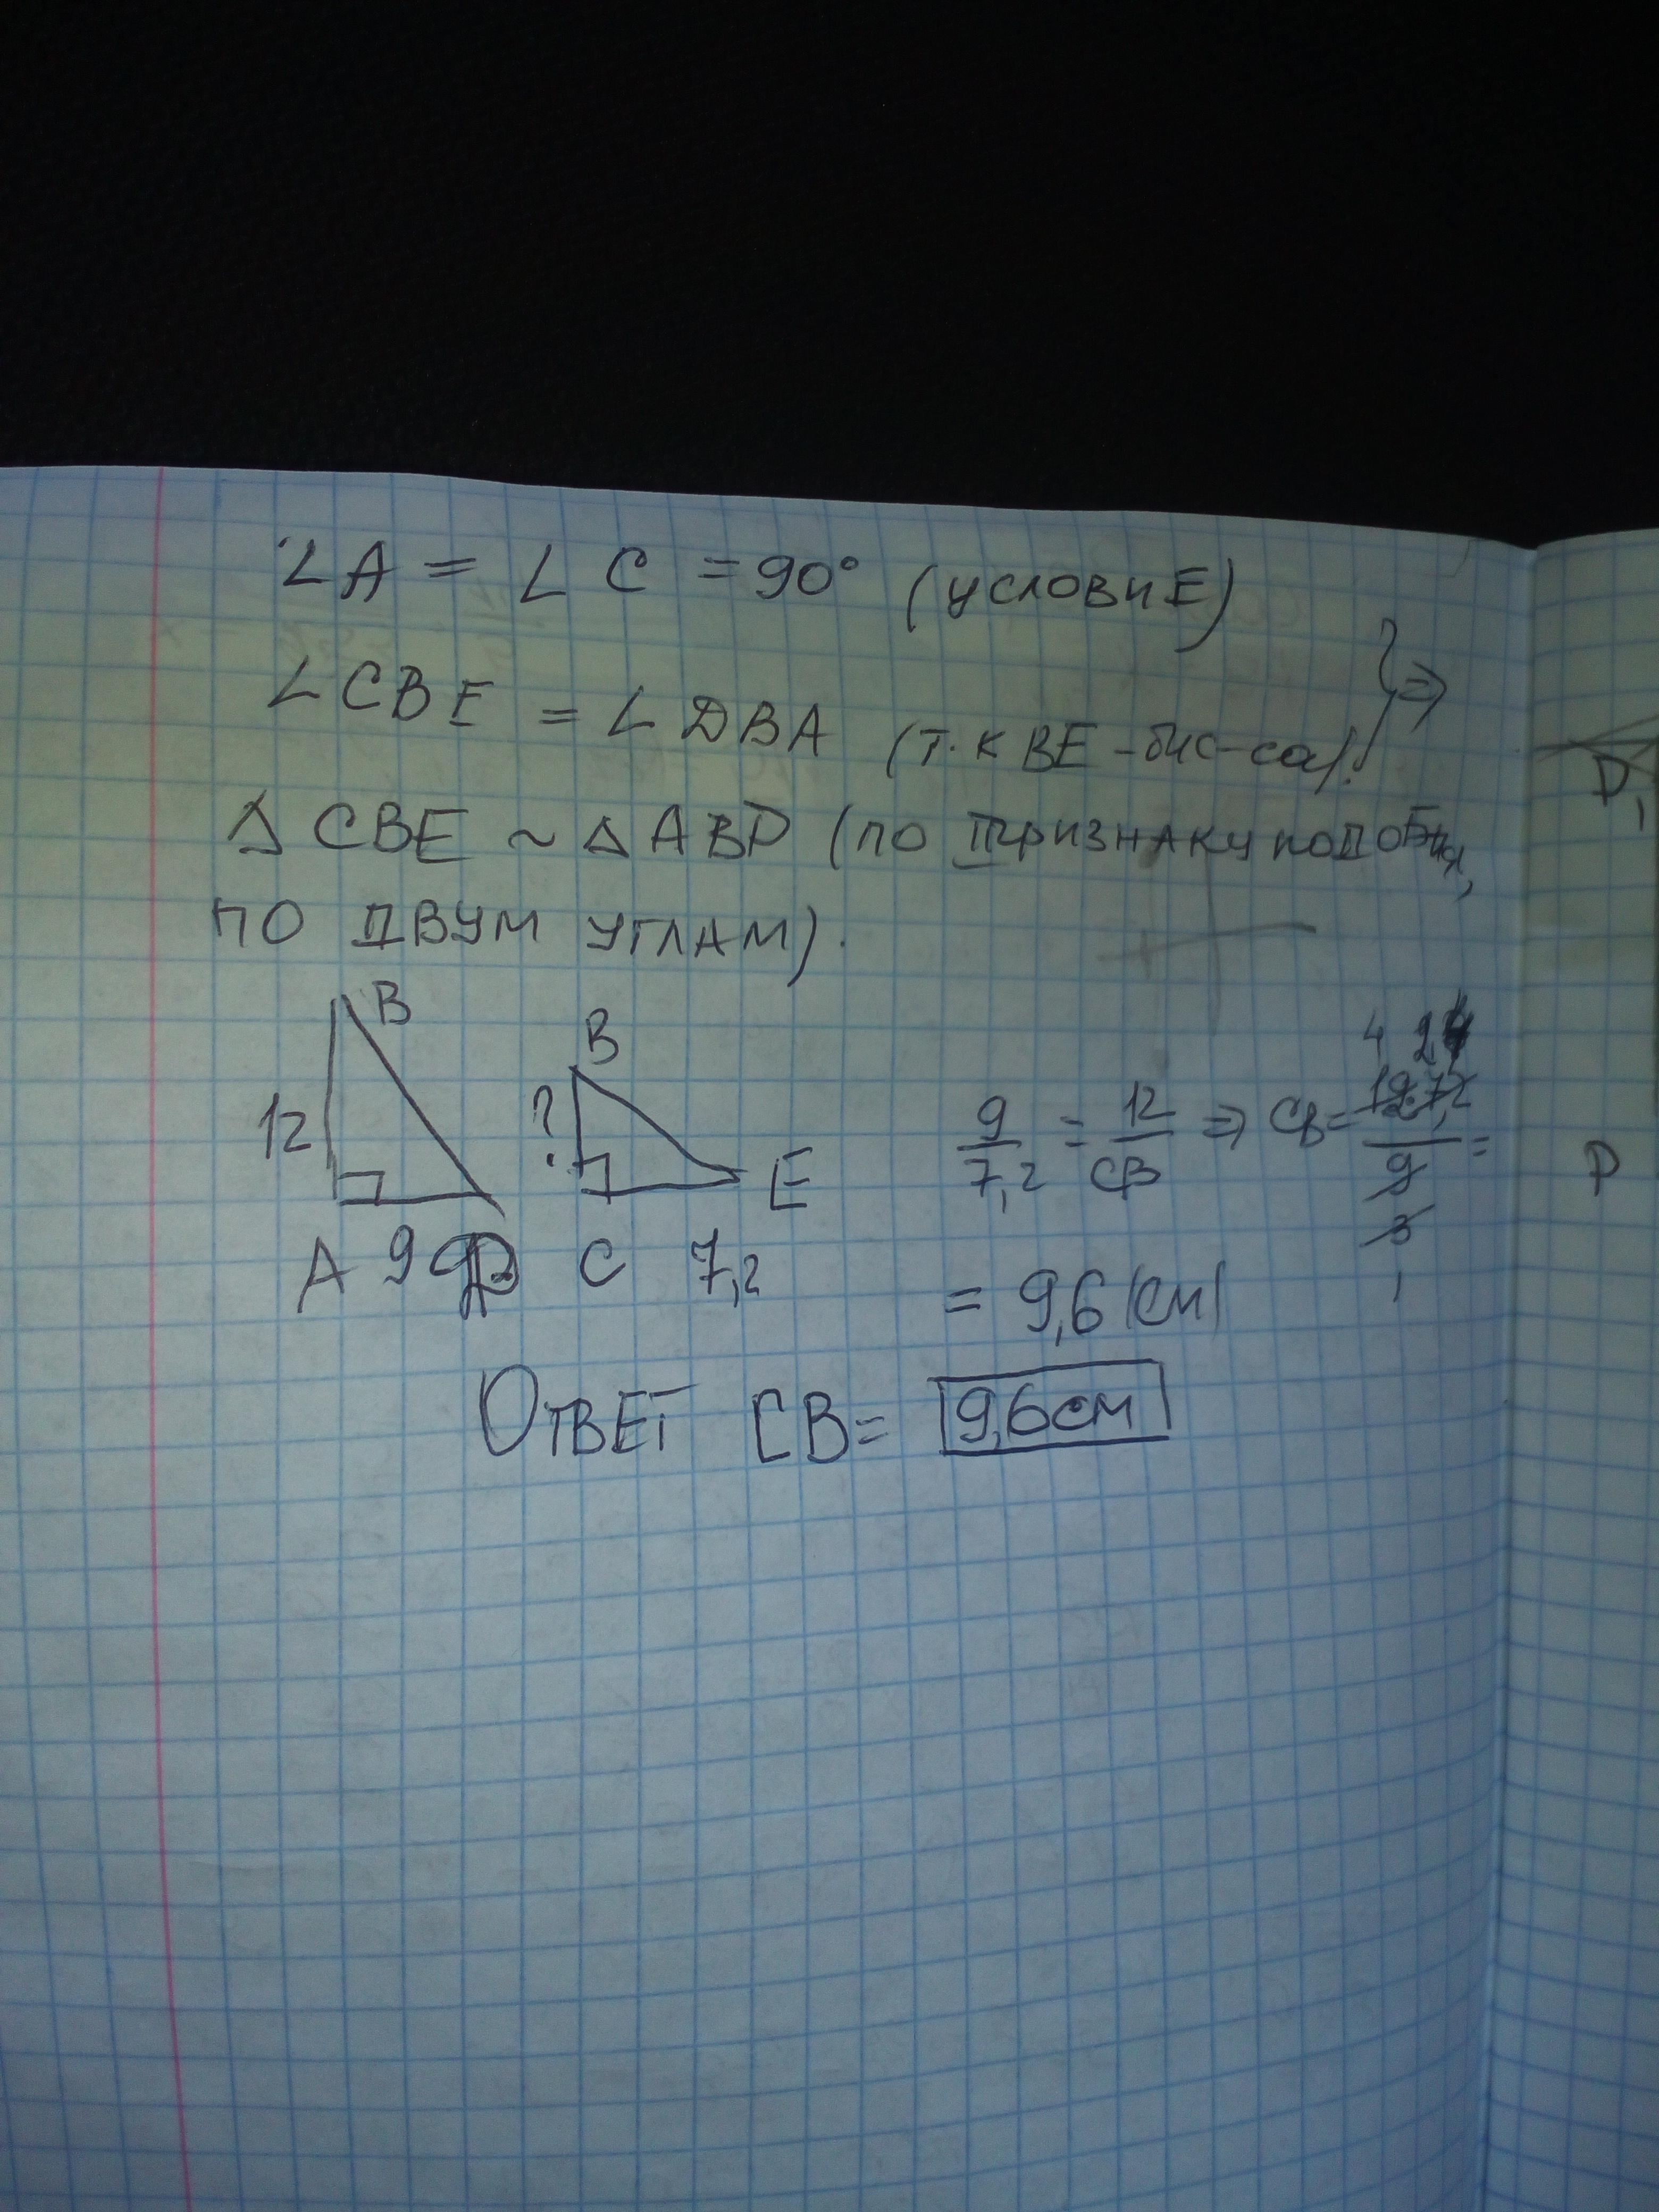 ∠A = ∠C = 90° (условие)
∠CBE = ∠DBA (т.к BE - бис-са). } ⇒
Δ CBE ~ Δ ABD (по I признаку подобия,
по двум углам).
B
B
12
?
E
A 9 D C 7,2
9/7,2 = 12/CB ⇒ CB = 12·7,2/9 =
4 2,4
3
1
= 9,6 (см)
Ответ CB = 9,6 см
D₁
P